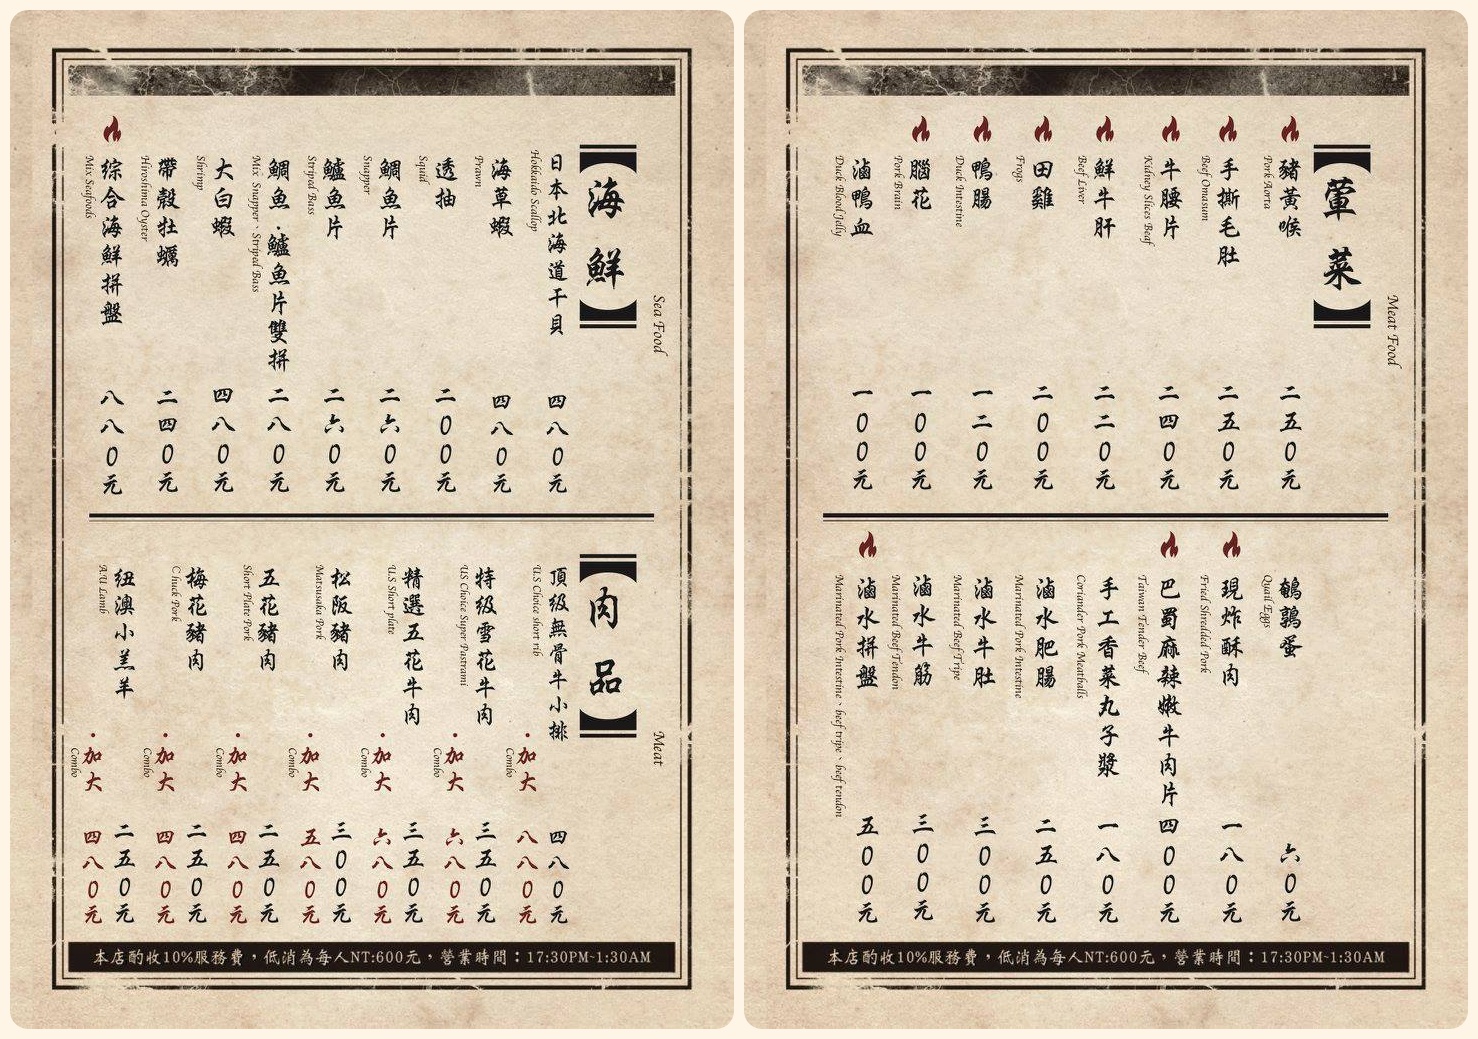 【葷菜】
Meat Food
豬黃喉
Pork Aorta
二五0元
手撕毛肚
Beef Omasum
二五0元
牛腰片
Kidney Slices Beaf
二四0元
鮮牛肝
Beef Liver
二二0元
田雞
Frogs
二00元
鴨腸
Duck Intestine
一二0元
腦花
Pork Brain
一00元
滷鴨血
Duck Blood Jelly
一00元
鵪鶉蛋
Quail Eggs
六0元
現炸酥肉
Fried Shredded Pork
一八0元
巴蜀麻辣嫩牛肉片
Taiwan Tender Beef
四00元
手工香菜丸子漿
Coriander Pork Meatballs
一八0元
滷水肥腸
Marinated Pork Intestine
二五0元
滷水牛肚
Marinated Beef Tripe
三00元
滷水牛筋
Marinated Beef Tendon
三00元
滷水拼盤
Marinated Pork Intestine、beef tripe、beef tendon
五00元
本店酌收10%服務費，低消為每人NT:600元，營業時間：17:30PM~1:30AM
【海鮮】
Sea Food
日本北海道干貝
Hokkaido Scallop
四八0元
海草蝦
Prawn
四八0元
透抽
Squid
二00元
鯛魚片
Snapper
二六0元
鱸魚片
Striped Bass
二六0元
鯛魚．鱸魚片雙拼
Mix Snapper、Striped Bass
二八0元
大白蝦
Shrimp
四八0元
帶殼牡蠣
Hiroshima Oyster
二四0元
综合海鮮拼盤
Mix Seafoods
八八0元
【肉品】
Meat
頂級無骨牛小排
U.S Choice short rib
四八0元
·加大
Combo
八八0元
特级雪花牛肉
US Choice Super Pastrami
三五0元
·加大
Combo
六八0元
精選五花牛肉
U.S Short plate
三五0元
·加大
Combo
六八0元
松阪豬肉
Matsusaka Pork
三00元
·加大
Combo
五八0元
五花豬肉
Short Plate Pork
二五0元
·加大
Combo
四八0元
梅花豬肉
Chuck Pork
二五0元
·加大
Combo
四八0元
纽澳小羔羊
A.U Lamb
二五0元
·加大
Combo
四八0元
本店酌收10%服務費，低消為每人NT:600元，營業時間：17:30PM~1:30AM